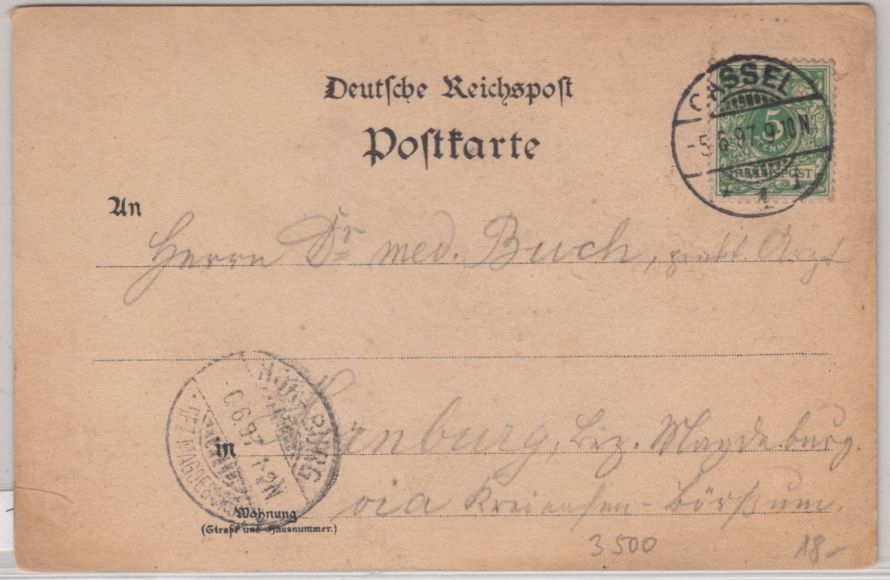 Deutsche Reichspost
Postkarte
CASSEL
-5.6.97.9-10N
* 1 J
5
PFENNIG
REICHSPOST
An
Herrn Dr med. Buch, prakt. Arzt
in
burg, Bez. Magdeburg.
via Kreiensen-Börßum.
6.97
1-2N
BEZ. MAGDEBG
Wohnung
(Straße und Hausnummer.)
3500
18-